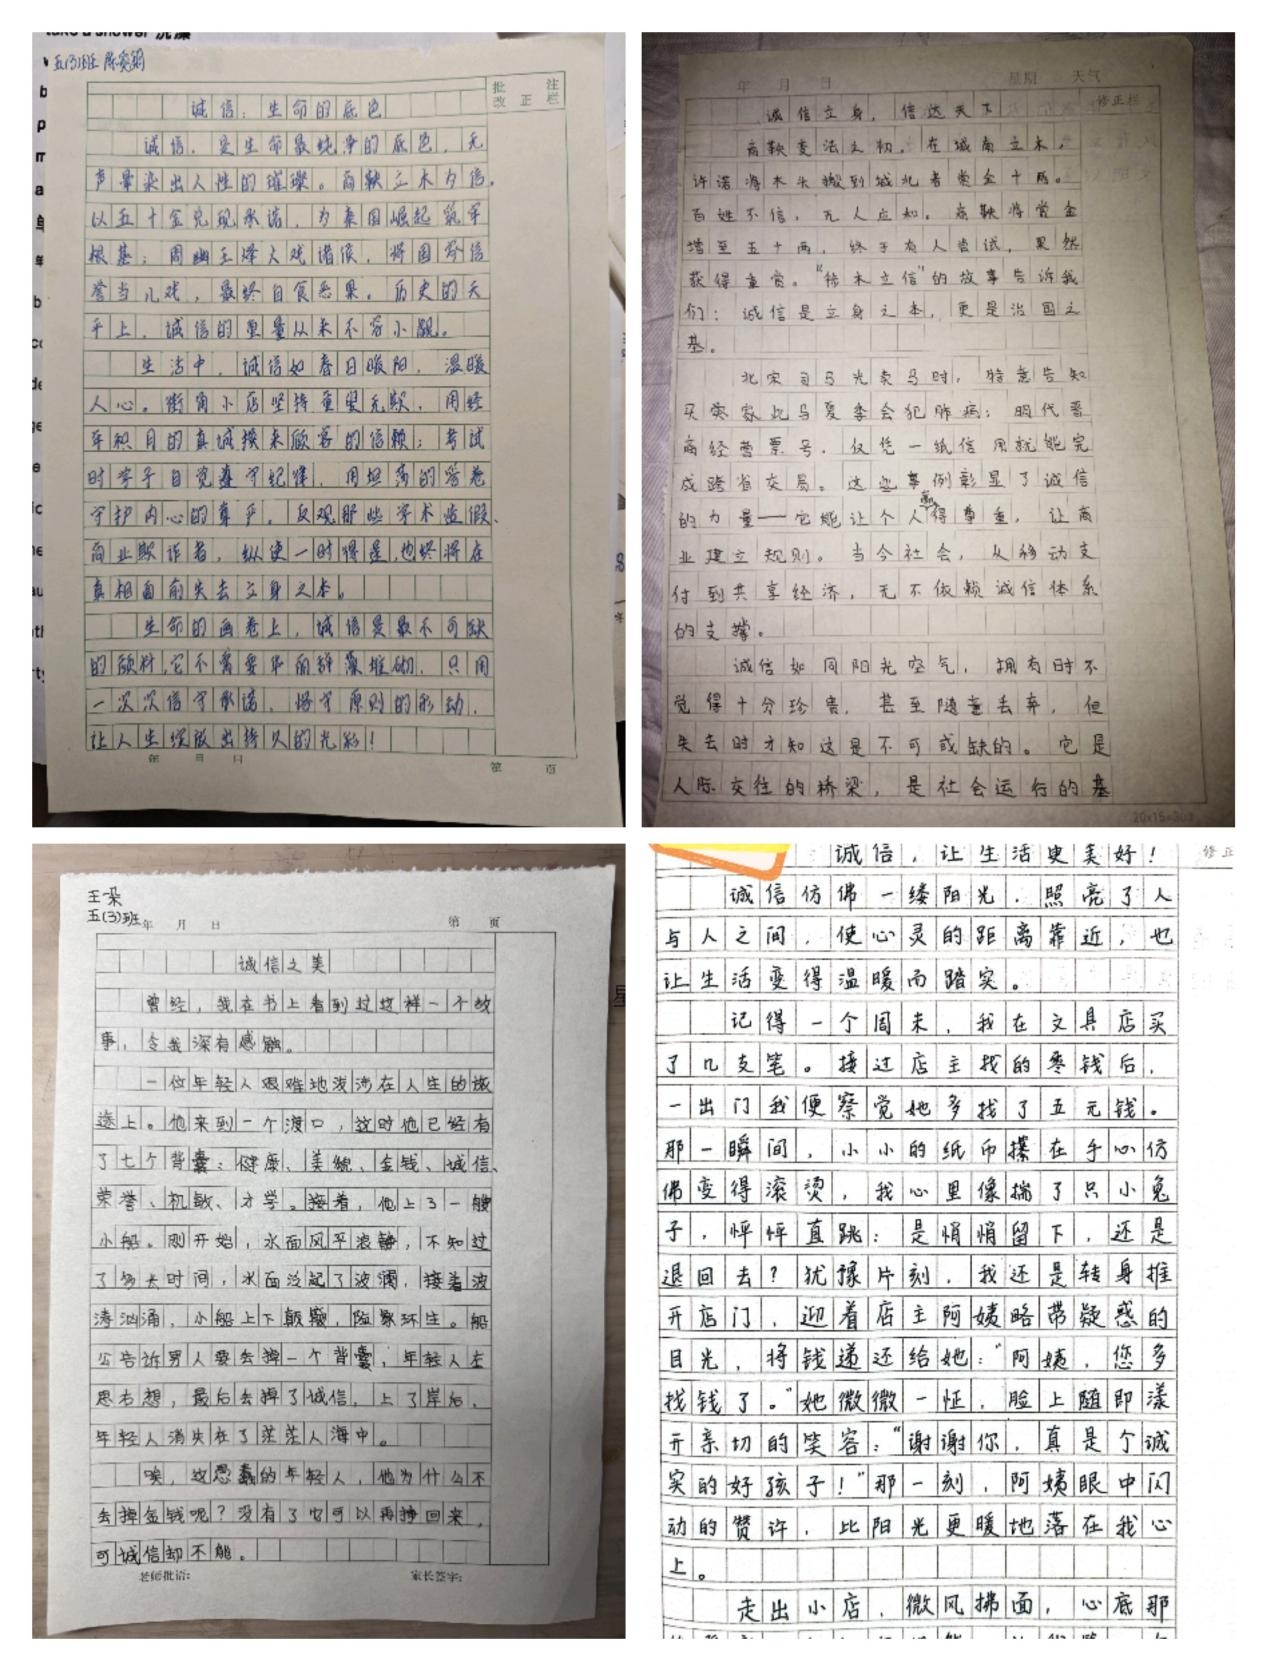 take a shower 洗澡
五(3)班 陈奕娴
批 注
改 正 栏
诚信：生命的底色
诚信，是生命最纯净的底色，无
声晕染出人性的璀璨。商鞅立木为信，
以五十金兑现承诺，为秦国崛起筑牢
根基；周幽王烽火戏诸侯，将国家信
誉当儿戏，最终自食恶果。历史的天
平上，诚信的重量从来不容小觑。
生活中，诚信如春日暖阳，温暖
人心。街角小店坚持童叟无欺，用经
年积月的真诚换来顾客的信赖；考试
时学子自觉遵守纪律，用坦荡的答卷
守护内心的尊严。反观那些学术造假、
商业欺诈者，纵使一时得逞，也终将在
真相面前失去立身之本。
生命的画卷上，诚信是最不可缺
的颜料，它不需要华丽辞藻堆砌，只用
一次次信守承诺、恪守原则的行动，
让人生绽放出持久的光彩！
年 月 日
第 页
年 月 日 星期 天气
修正栏
诚信立身，信达天下
商鞅变法之初，在城南立木，
许诺将木头搬到城北者赏金十两。
百姓不信，无人应如。商鞅将赏金
增至五十两，终于有人尝试，果然
获得重赏。“徙木立信”的故事告诉我
们：诚信是立身之本，更是治国之
基。
北宋司马光卖马时，特意告知
买家此马夏季会犯肺病；明代晋
商经营票号，仅凭一纸信用就能完
成跨省交易。这些事例彰显了诚信
的力量——它能让个人赢得尊重，让商
业建立规则。当今社会，从移动支
付到共享经济，无不依赖诚信体系
的支撑。
诚信如同阳光空气，拥有时不
觉得十分珍贵，甚至随意丢弃，但
失去时才知这是不可或缺的。它是
人际交往的桥梁，是社会运行的基
20x15=300
王一朵
五(3)班
年 月 日 第 页
诚信之美
曾经，我在书上看到过这样一个故
事，令我深有感触。
一位年轻人艰难地跋涉在人生的旅
途上。他来到一个渡口，这时他已经有
了七个背囊：健康、美貌、金钱、诚信、
荣誉、机敏、才学。接着，他上了一艘
小船。刚开始，水面风平浪静，不知过
了多长时间，水面泛起了波澜，接着波
涛汹涌，小船上下颠簸，险象环生。船
公告诉男人要去掉一个背囊，年轻人左
思右想，最后去掉了诚信，上了岸后，
年轻人消失在了茫茫人海中。
唉，这愚蠢的年轻人，他为什么不
去掉金钱呢？没有了它可以再挣回来，
可诚信却不能。
老师批语：
家长签字：
诚信，让生活更美好！
修正
诚信仿佛一缕阳光，照亮了人
与人之间，使心灵的距离靠近，也
让生活变得温暖而踏实。
记得一个周末，我在文具店买
了几支笔。接过店主找的零钱后，
一出门我便察觉她多找了五元钱。
那一瞬间，小小的纸币攥在手心仿
佛变得滚烫，我心里像揣了只小兔
子，怦怦直跳：是悄悄留下，还是
退回去？犹豫片刻，我还是转身推
开店门，迎着店主阿姨略带疑惑的
目光，将钱递还给她：“阿姨，您多
找钱了。”她微微一怔，脸上随即漾
开亲切的笑容：“谢谢你，真是个诚
实的好孩子！”那一刻，阿姨眼中闪
动的赞许，比阳光更暖地落在我心
上。
走出小店，微风拂面，心底那